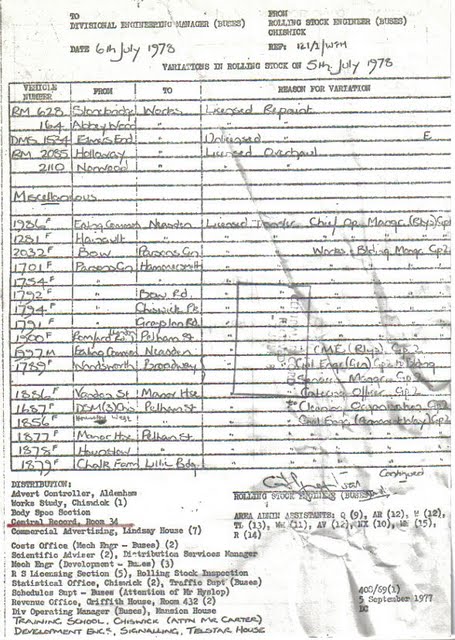 TO
DIVISIONAL ENGINEERING MANAGER (BUSES)
FROM
ROLLING STOCK ENGINEER (BUSES)
CHISWICK
DATE 6th July 1978
REF: 121/2/WPM
VARIATIONS IN ROLLING STOCK ON 5th July 1978
VEHICLE NUMBER FROM TO REASON FOR VARIATION
RM 628 Stonebridge Works Licensed Repaint
164 Abbey Wood " " "
DMS 1534 Elmers End " Unlicensed " E
RM 2085 Holloway " Licensed Overhaul
2110 Norwood " " "
Miscellaneous
1986F Ealing Common Neasden Licensed Transfer Chief Op. Mangr. (Rlys) Gp2
1281F Hainault " " "
2032F Bow Parsons Gn " " Works & Bldng Mangr Gp2
1701F Parsons Gn Hammersmith " "
1754F " " " "
1792F " Bow Rd. " "
1794F " Chiswick Pk "
1791F " "
1900F Romford Pelham St "
Ealing Common Neasden " CME (Rlys) Gp 2
1789F Wandsworth Broadway Civil Engr (Gen)
1886F Manor Hse " Catering Officer Gp 2
1687F Pelham St "
1856F " " "
1877F Manor Hse Pelham St " "
1878F Hounslow " " "
1879F Chalk Farm Lillie Bdg. " "
Continued
DISTRIBUTION:
Advert Controller, Aldenham
Works Study, Chiswick (1)
Body Spec Section
Central Record, Room 34
Commercial Advertising, Lindsay House (7)
Costs Office (Mech Engr - Buses) (2)
Scientific Adviser (2), Distribution Services Manager
Mech Engr (Development - Buses) (3)
R S Licensing Section (5), Rolling Stock Inspection
Statistical Office, Chiswick (2), Traffic Supt (Buses)
Schedules Supt - Buses (Attention of Mr Hyslop)
Revenue Office, Griffith House, Room 432 (2)
Div Operating Manager (Buses), Mansion House
TRAINING SCHOOL, CHISWICK (ATTN MR CARTER)
DEVELOPMENT ENG'R, SIGNALLING, TELSTAR HOUSE
ROLLING STOCK ENGINEER (BUSES)
AREA ADMIN ASSISTANTS: Q (9), AR (12), W (12),
TL (13), (11), AV (12), NX (10), (15),
R (14)
400/69(1)
5 September 1977